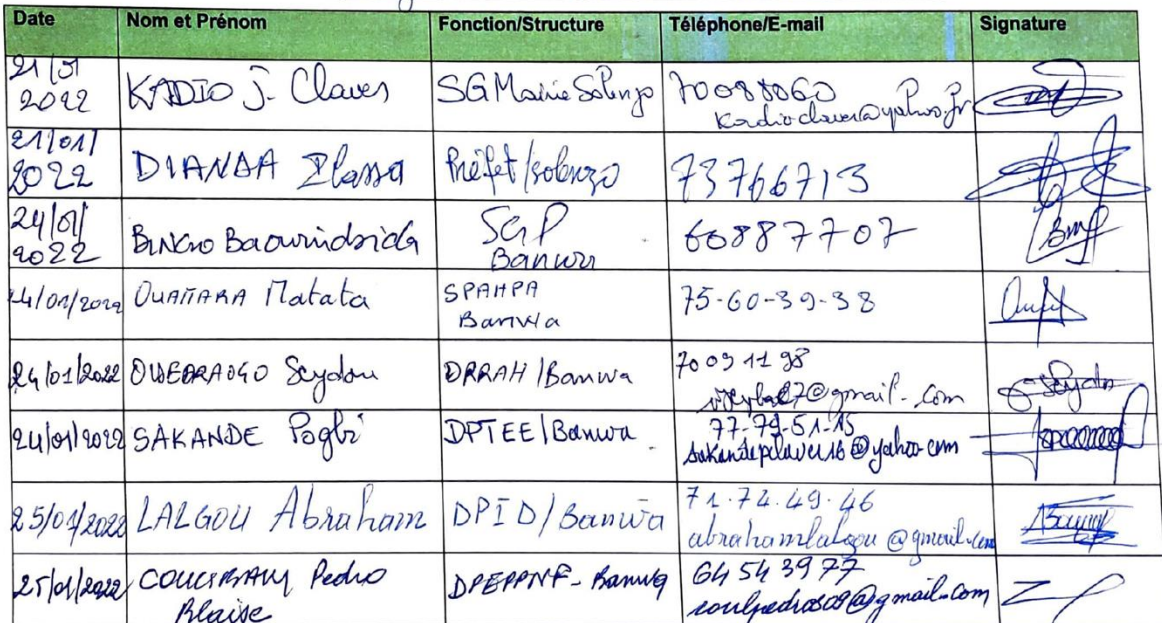 Date Nom et Prénom Fonction/Structure Téléphone/E-mail Signature
21/01 2022 KADIO J. Claver SG Mairie Solenzo 70088060
kadioclaver@yahoo.fr
21/01/ 2022 DIANDA Ilassa Préfet/solenzo 73766713
24/01/ 2022 SGP 60887707
Banwa
24/01/2022 OUATTARA Matata SPAHPA 75-60-39-38
Banwa
24/01/2022 OUEDRAOGO Seydou DRRAH/Banwa 70 09 11 98
@gmail.com
24/01/2022 SAKANDE Pogbi DPTEE/Banwa 77-79-51-15
@yahoo.com
25/01/2022 LALGOU Abraham DPID/Banwa 71.74.49.46
abrahamlalgou@gmail.com
25/01/2022 Pedro DPEPPNF-Banwa 64 54 39 77
Blaise @gmail.com